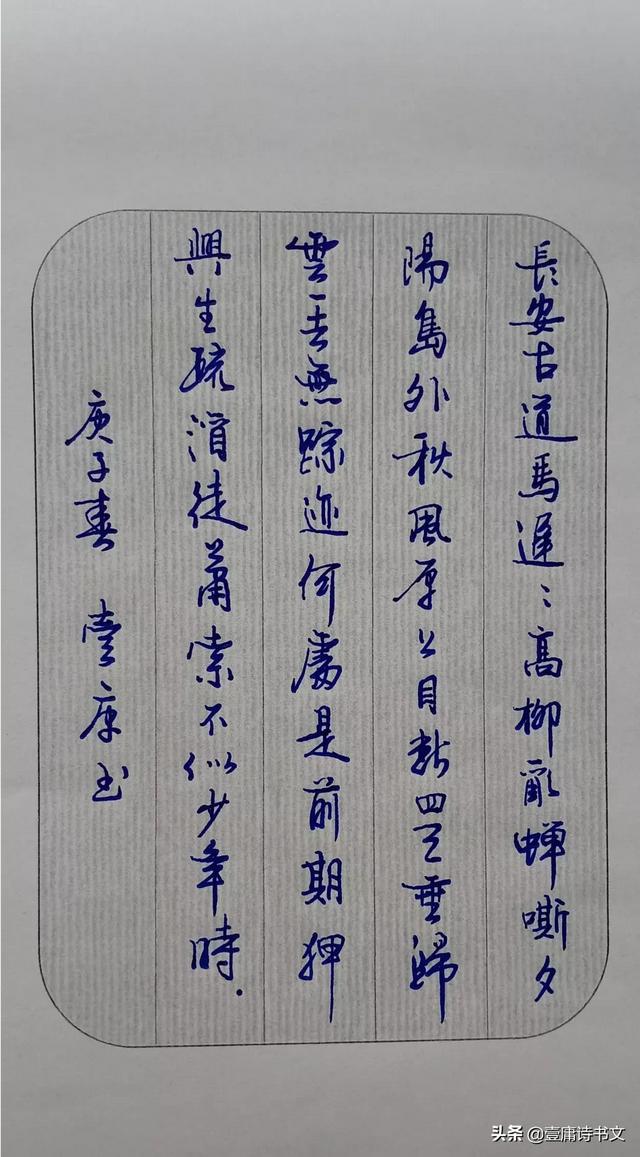 長安古道馬遲〻高柳亂蝉嘶夕
陽島外秋風原上目斷四天垂歸
雲一去無踪迹何處是前期狎
興生疏酒徒蕭索不似少年時.
庚子春 壹庸书
头条 @壹庸诗书文